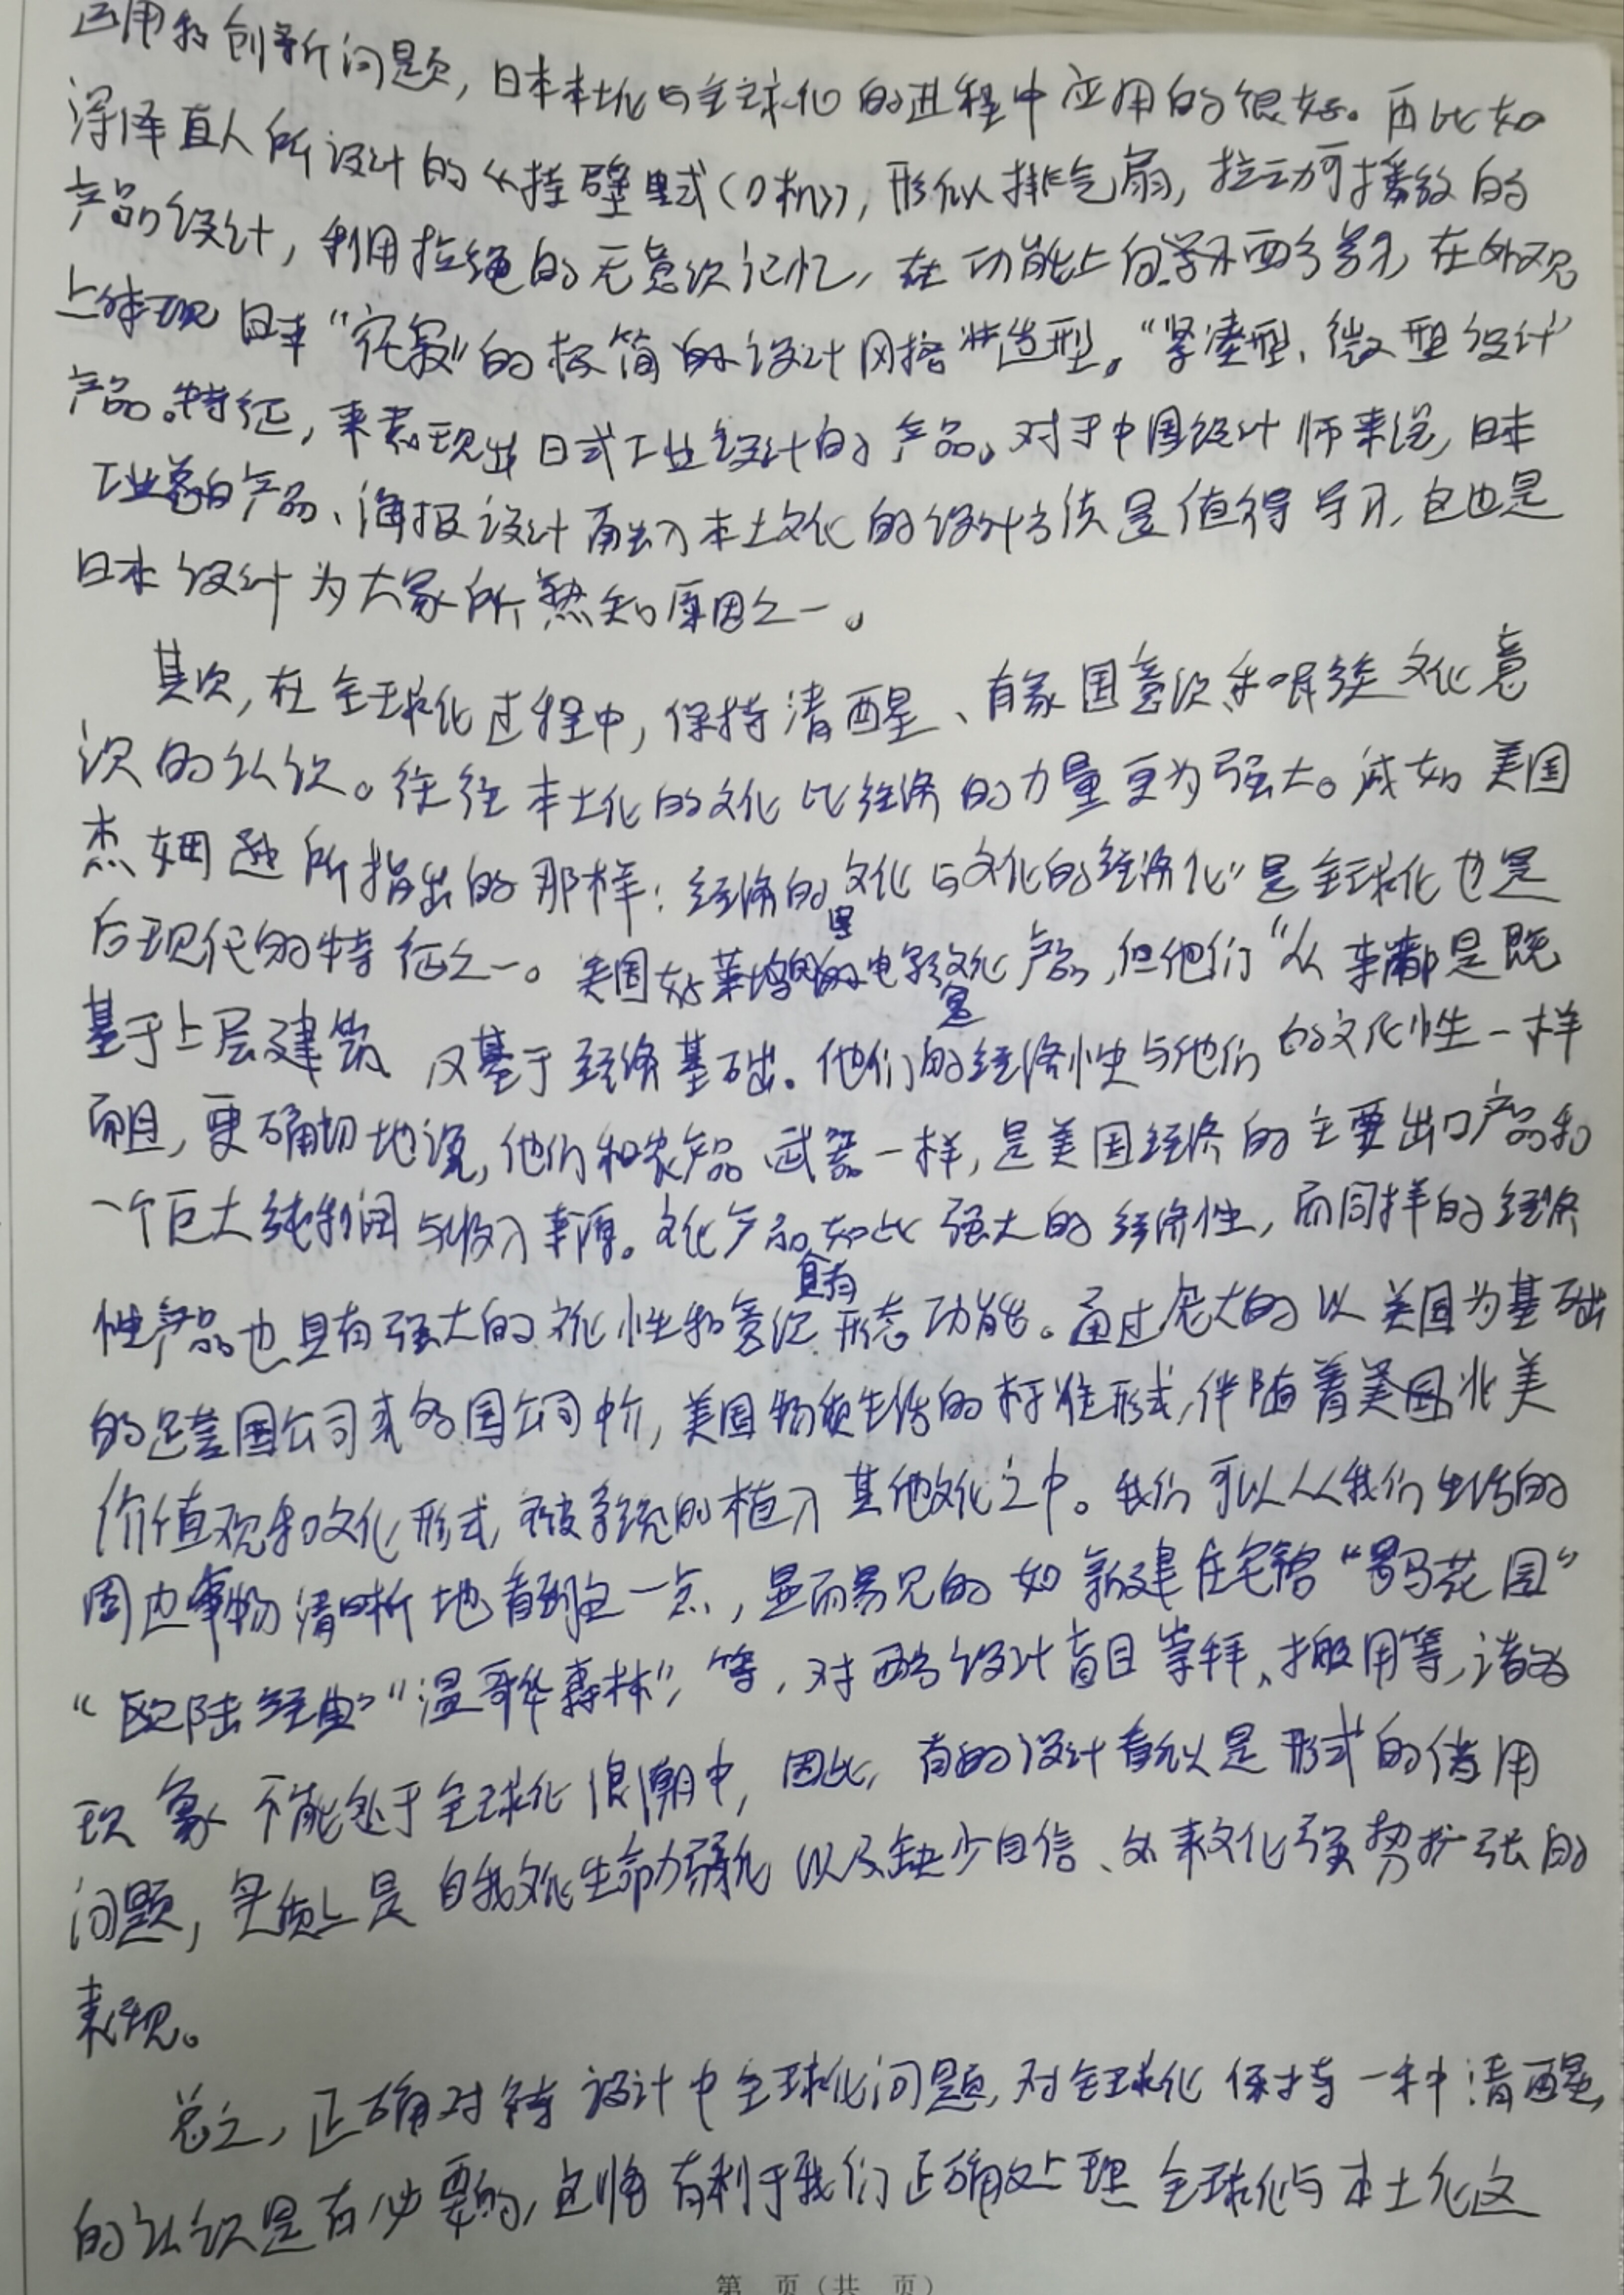 运用和创新问题,日本本土化与全球化的进程中应用的很好。再比如
深泽直人所设计的《挂壁式CD机》,形似排气扇,拉动可播放的
产品设计,利用拉绳的无意识记忆,在功能上向学习西方学习,在外观
上体现日本“侘寂”的极简的设计风格造型。“紧凑型、微型设计”
产品。特征,来表现出日式工业设计的产品。对于中国设计师来说,日本
工业的产品、海报设计再融入本土文化的设计方法是值得学习,这也是
日本设计为大家所熟知原因之一。
其次,在全球化过程中,保持清醒、有家国意识和民族文化意
识的认识。往往本土化的文化比经济的力量更为强大。诚如美国
杰姆逊所指出的那样:经济的文化与文化的经济化”是全球化也是
后现代的特征之一。美国好莱坞的电影是文化产品,但他们“从来都是既
基于上层建筑又基于经济基础。他们的经济性与他们的文化性一样
而且,更确切地说,他们和农产品、武器一样,是美国经济的主要出口产品和
一个巨大纯利润与收入来源。文化产品如此强大的经济性,而同样的经济
性产品也具有强大的文化性和意识形态功能。通过庞大的以美国为基础
的跨国公司或多国公司中介,美国物质生活的标准形式,伴随着美国北美
价值观和文化形式,被系统的植入其他文化之中。我们可以从我们生活的
周边事物清晰地看到这一点,显而易见的如新建住宅楷“罗马花园”
“欧陆经典”“温哥华森林”,等,对西方设计盲目崇拜、搬用等,诸多
现象不能处于全球化浪潮中,因此,有的设计看似是形式的借用
问题,实质上是自我文化生命力弱化以及缺少自信、外来文化强势扩张的
表现。
总之,正确对待设计中全球化问题,对全球化保持一种清醒
的认识是有必要的,这将有利于我们正确处理全球化与本土化这
第 页(共 页)